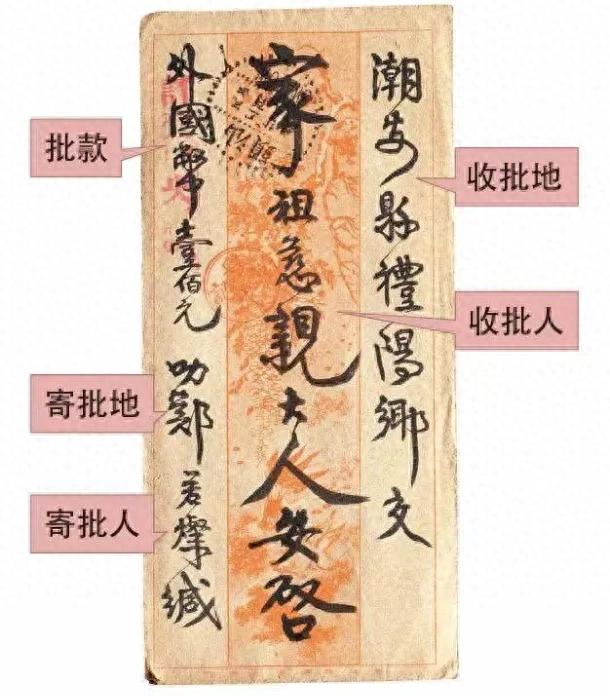 潮安縣禮陽鄉交
家祖慈親大人安啓
外國幣壹佰元 叻鄭若燦緘
批款
收批地
收批人
寄批地
寄批人